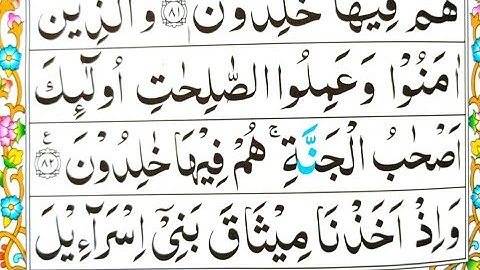 هُمْ فِيْهَا خٰلِدُوْنَ ﴿۸۱﴾ وَالَّذِيْنَ
اٰمَنُوْا وَعَمِلُوا الصّٰلِحٰتِ اُولٰٓئِكَ
اَصْحٰبُ الْجَنَّةِ ۚ هُمْ فِيْهَا خٰلِدُوْنَ ﴿۸۲﴾ ع
وَاِذْ اَخَذْنَا مِيْثَاقَ بَنِيْٓ اِسْرَآءِيْلَ